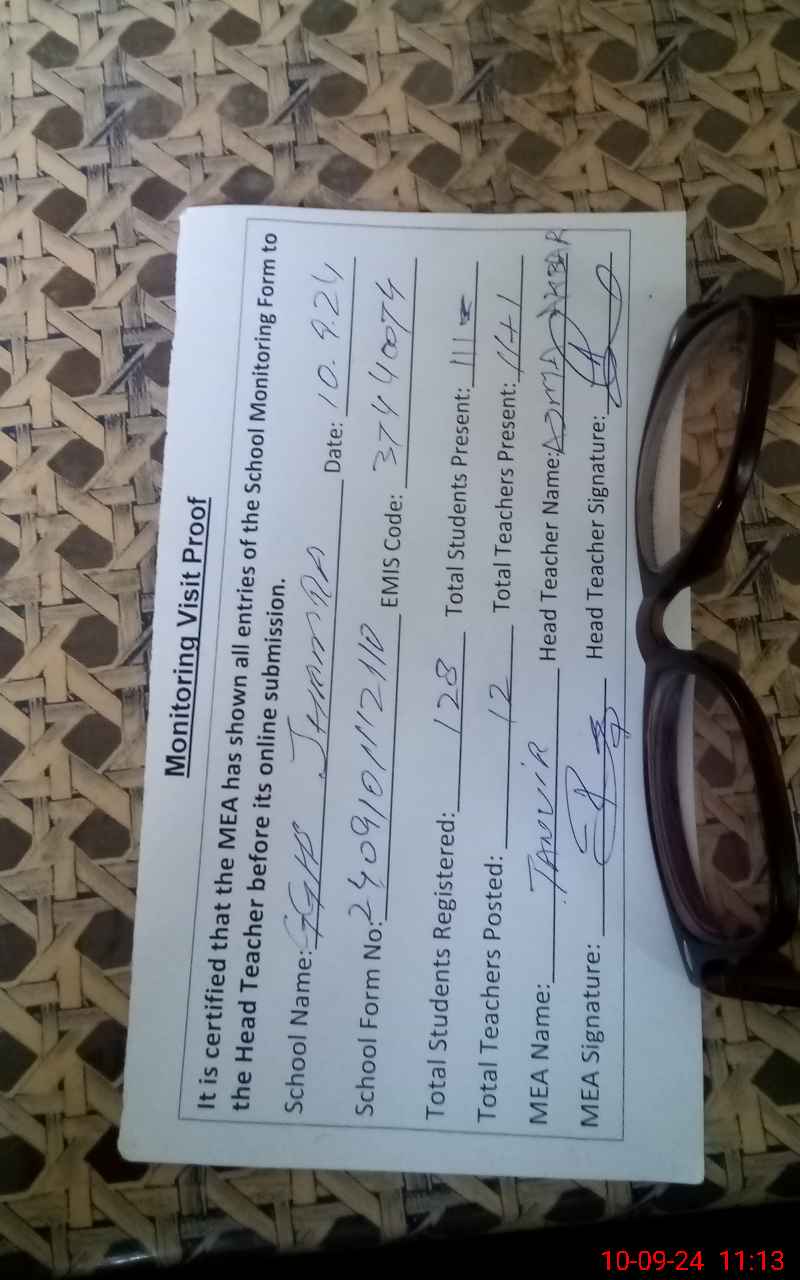 Monitoring Visit Proof
It is certified that the MEA has shown all entries of the School Monitoring Form to
the Head Teacher before its online submission.
School Name: GGHS Date: 10.9.24
School Form No: EMIS Code: 37440074
Total Students Registered: 128 Total Students Present: 111
Total Teachers Posted: 12 Total Teachers Present: 11+1
MEA Name: TANVIR Head Teacher Name:
MEA Signature: Head Teacher Signature:
10-09-24 11:13